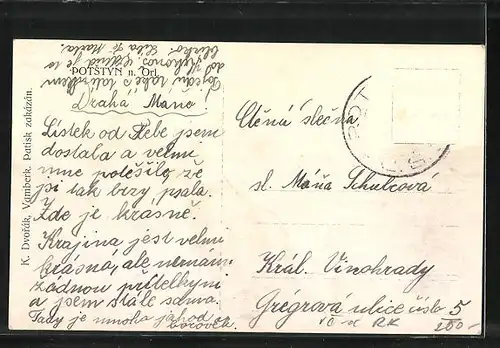 POTŠTYN n. Orl.
Drahá Máno
Lístek od Tebe jsem
dostala a velmi
mne potěšilo že
jsi tak brzy psala.
Zde je krásně.
Krajina jest velmi
krásná, ale nemám
žádnou přítelkyni
a jsem stále sama.
Tady je mnoho jahod a
borůvek.
K. Dvořák, Vamberk. Patisk zakázán.
Ctěná slečna
sl. Máňa Schulcová
Král. Vinohrady
Grégrova ulice číslo 5